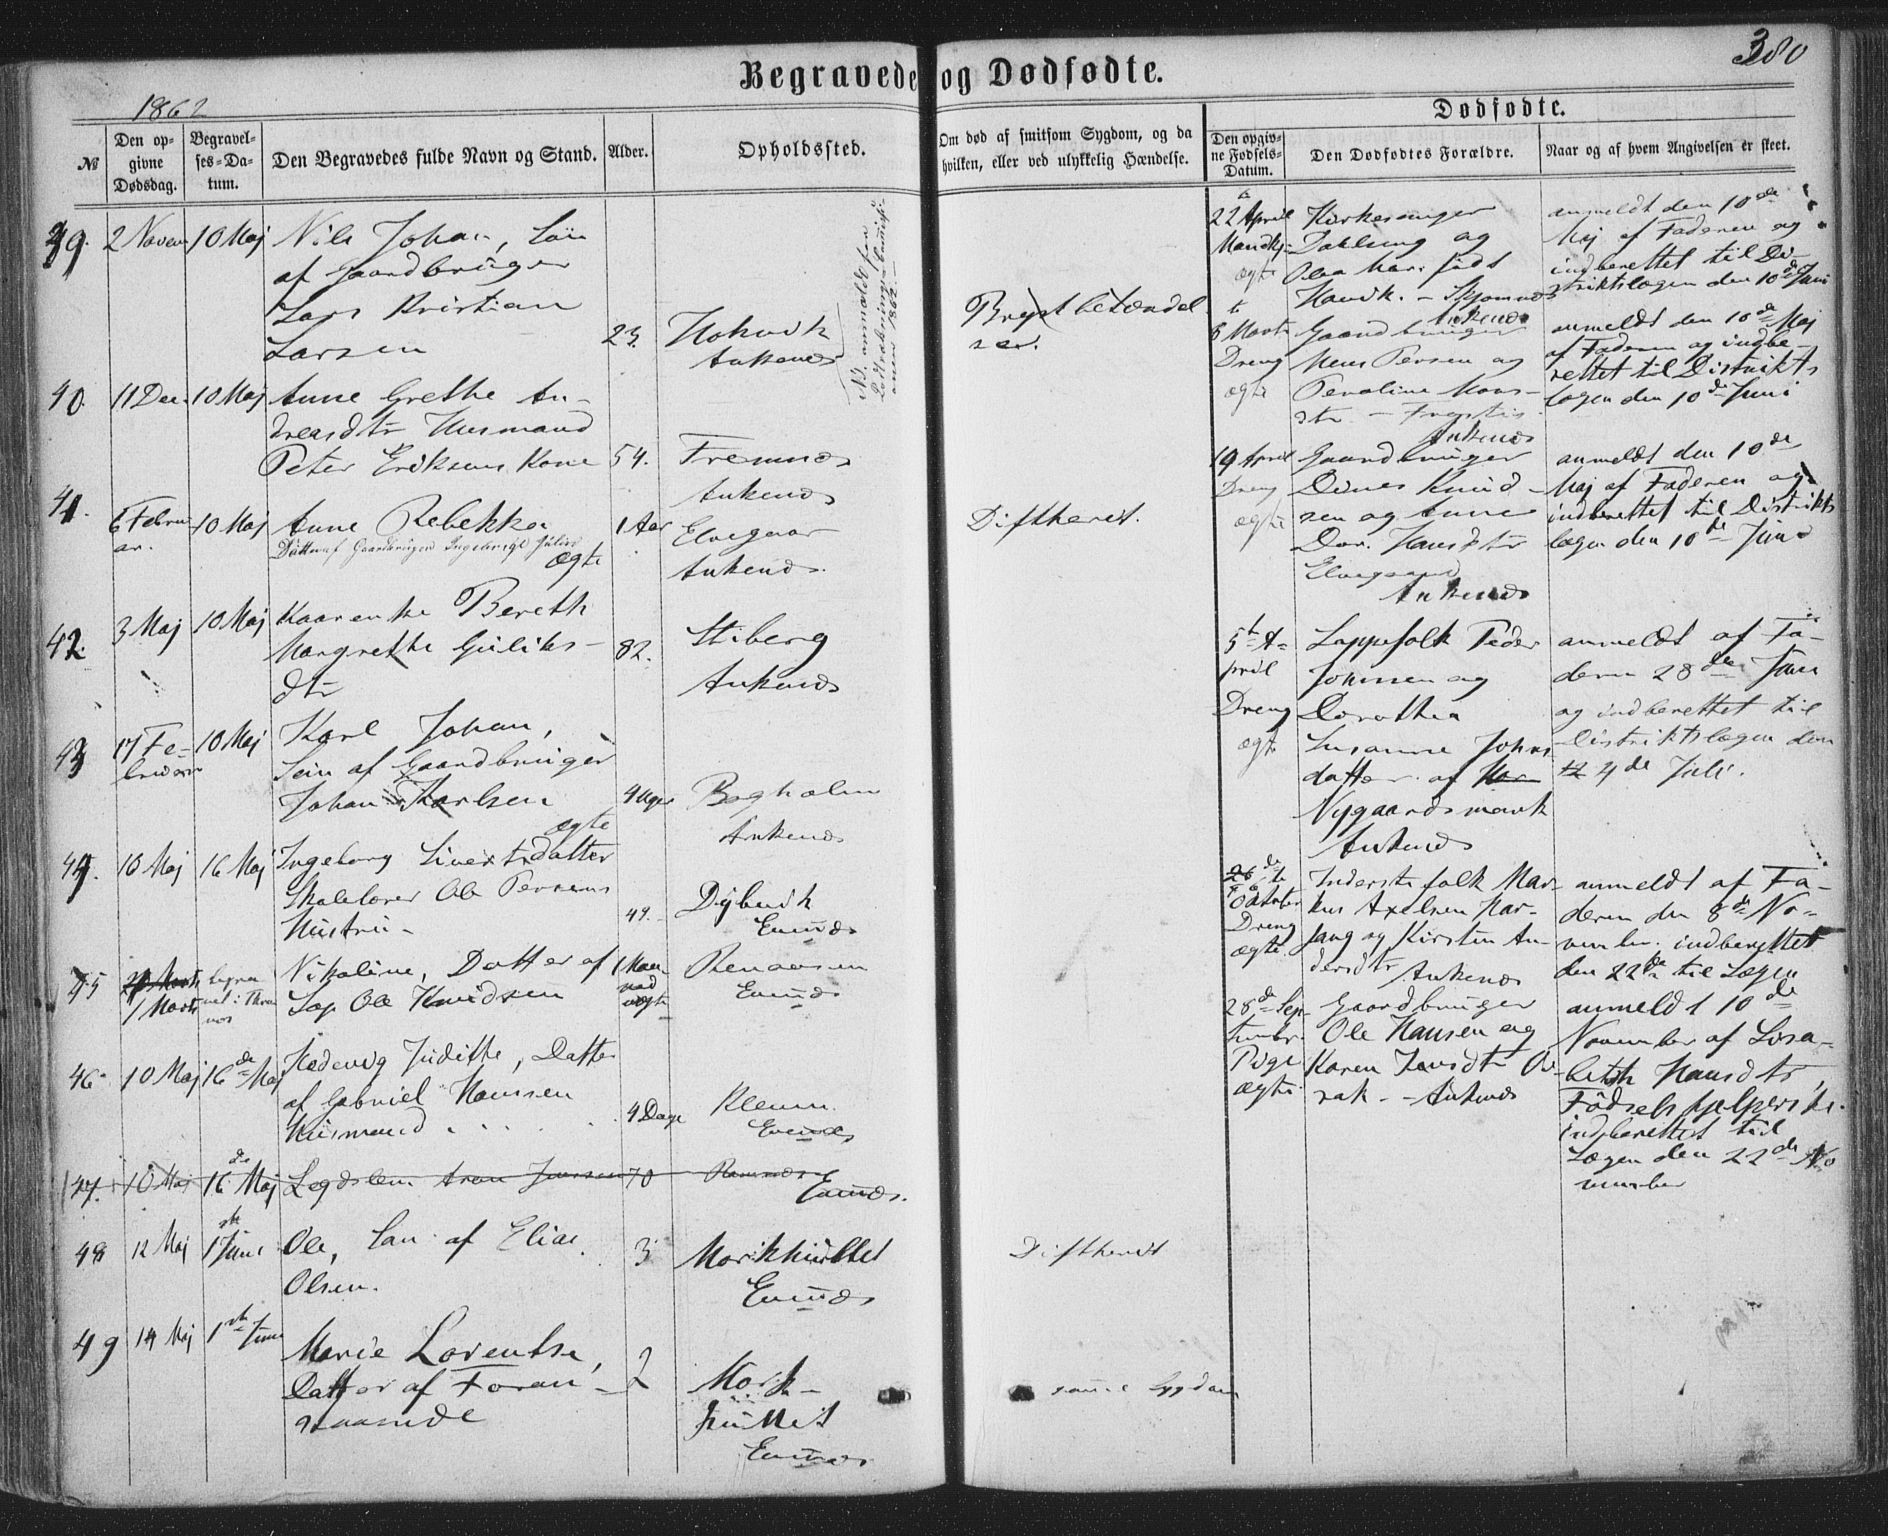 380
Begravede og Dødfødte.
1862
№
Den opgivne Dødsdag.
Begravelses-Datum.
Den Begravedes fulde Navn og Stand.
Alder.
Opholdssted.
Om død af smitsom Sygdom, og da hvilken, eller ved ulykkelig Hændelse.
Dødfødte.
Den opgivne Fødsels-Datum.
Den Dødfødtes Forældre.
Naar og af hvem Angivelsen er skeet.
39. 2 Novem 10 Maj Nils Johan, Søn
af Gaardbruger
Lars Kristian
Larsen 23. Hokvik
Ankenes
Brystbetændel
ser.
NB. anmeldt for
40. 11 Dec. 10 Maj Anne Grethe An-
dreasdtr Husmand
Peter Eriksens Kone 54. Fremnes
Ankenes
41. 6 Febru
ar. 10 Maj Anne Rebekka 1 Aar Elvegaar
Datter af Gaardbruger Ingebrigt Julius
ægte Ankenes.
Diftherit.
42. 3 Maj 10 Maj Kaarenke Bereth
Margrethe Guliks-
dtr 82. Stiberg
Ankenes
43 17 Fe-
bruar 10 Maj Karl Johan,
Søn af Gaardbruger
Johan Karlsen 4 Uger Bogholm
ægte Ankenes
44. 10 Maj 16 Maj Ingeborg Sivertsdatter
Skolelærer Ole Persens
Hustru - 49. Dybvik
Evenæs
45 1 Marts Nikoline, Datter af 1 Maa-
Lap Ole Knudsen nad ægte
Evenæs
46 10 Maj 16de Maj Hedevig Judithe, Datter
af Gabriel Hanssen
Husmand 4 Dage Kleum.
Evenæs
47. 10 Maj 16de Maj Lægdslem Aron Jonssen 70
Evenæs.
48 12 Maj 1ste Juni Ole, Søn af Elias
Olsen. 3 Morkhullet
Evenæs
Diftherit
49 14 Maj 1ste Juni Marie Lorentse,
Datter af Foran-
staaende 2 Mork-
hullet
Evenæs
samme Sygdom
22 April
Mandkj-
ægte
Kirkesanger
og
Ankenes
anmeldt den 10de
Maj af Faderen og
indberettet til Di-
striktslægen den 10de Juni
6 Marts
Dreng
ægte
Gaardbruger
Mons Persen og
Peroline Mons-
dtr -
Ankenes
anmeldt den 10de Maj
af Faderen og indbe-
rettet til Distrikts
lægen den 10de Juni
19 April
Dreng
ægte
Gaardbruger
Dines Knud-
sen og Anne
Dor. Hansdtr
Elvegaard
Ankenes
anmeldt den 10de
Maj af Faderen og
indberettet til Distrikts
lægen den 10de Juni
5te A-
pril
Dreng
ægte
Lappefolk Peder
Johnsen og
Dorothea
Susanne Johns
datter af
Nygaardsmark
Ankenes
anmeldt af Fa-
deren 28de Juni
og indberettet til
Distriktslægen den
4de Juli.
Oktober
Dreng
ægte
Inderstefolk Mar-
kus Axelsen Har-
jang og Kirsten An-
dersdtr Ankenes
anmeldt af Fa-
deren den 8de No-
vember. indberettet
den 22de til Lægen
28de Sep-
tembr.
Pige
ægte
Gaardbruger
Ole Hansen og
Karen Jensdtr
- Ankenes
anmeldt 10de
November af Lisa-
beth Hansdtr,
Fødselshjelperske.
indberettet til
Lægen den 22de No
vember